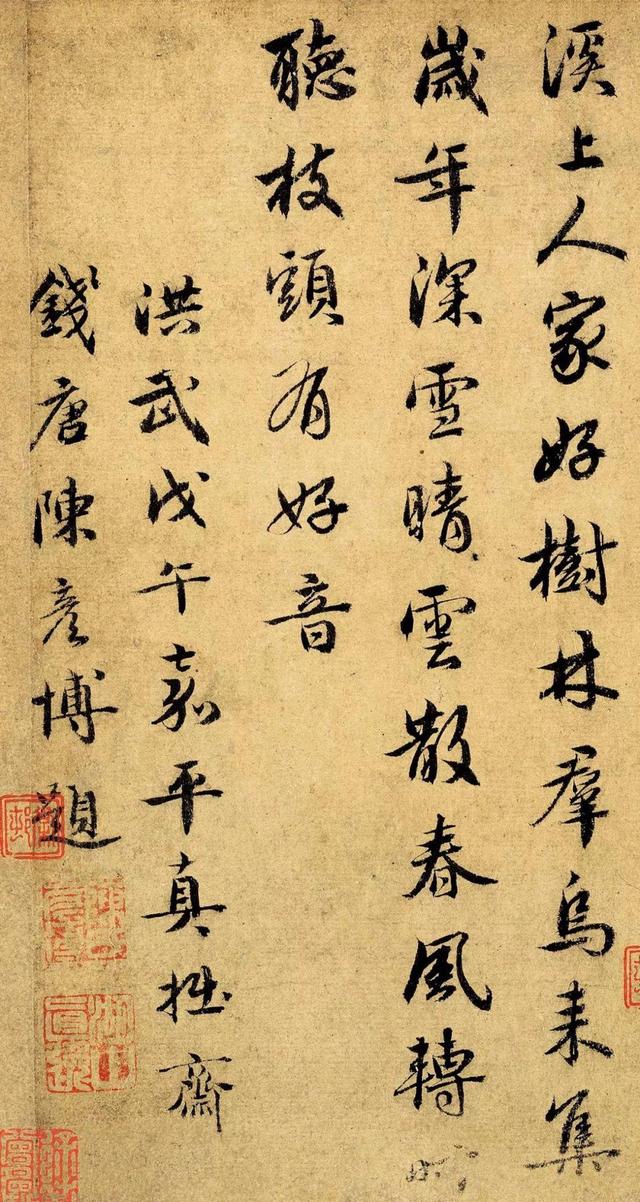 溪上人家好樹林羣烏来集
歲年深雪晴雲散春風轉
聽枝頭有好音
洪武戊午嘉平真拙齋
錢唐陳彥博題